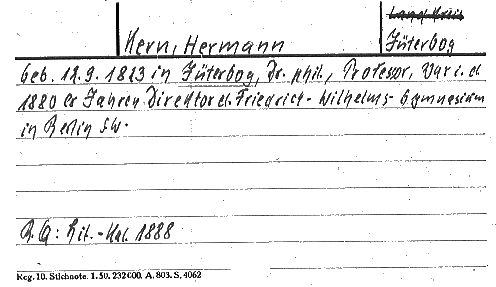 Land Kreis
Kern, Hermann
Jüterbog
Geb. 12.9.1823 in Jüterbog, Dr. phil., Professor, War i. d.
1880 er Jahren Direktor d. Friedrich-Wilhelms-Gymnasium
in Berlin SW.
R. Q: Lit.-Kal. 1888
Reg. 10. Stichnote. 1. 50. 232000. A. 803. S. 4062